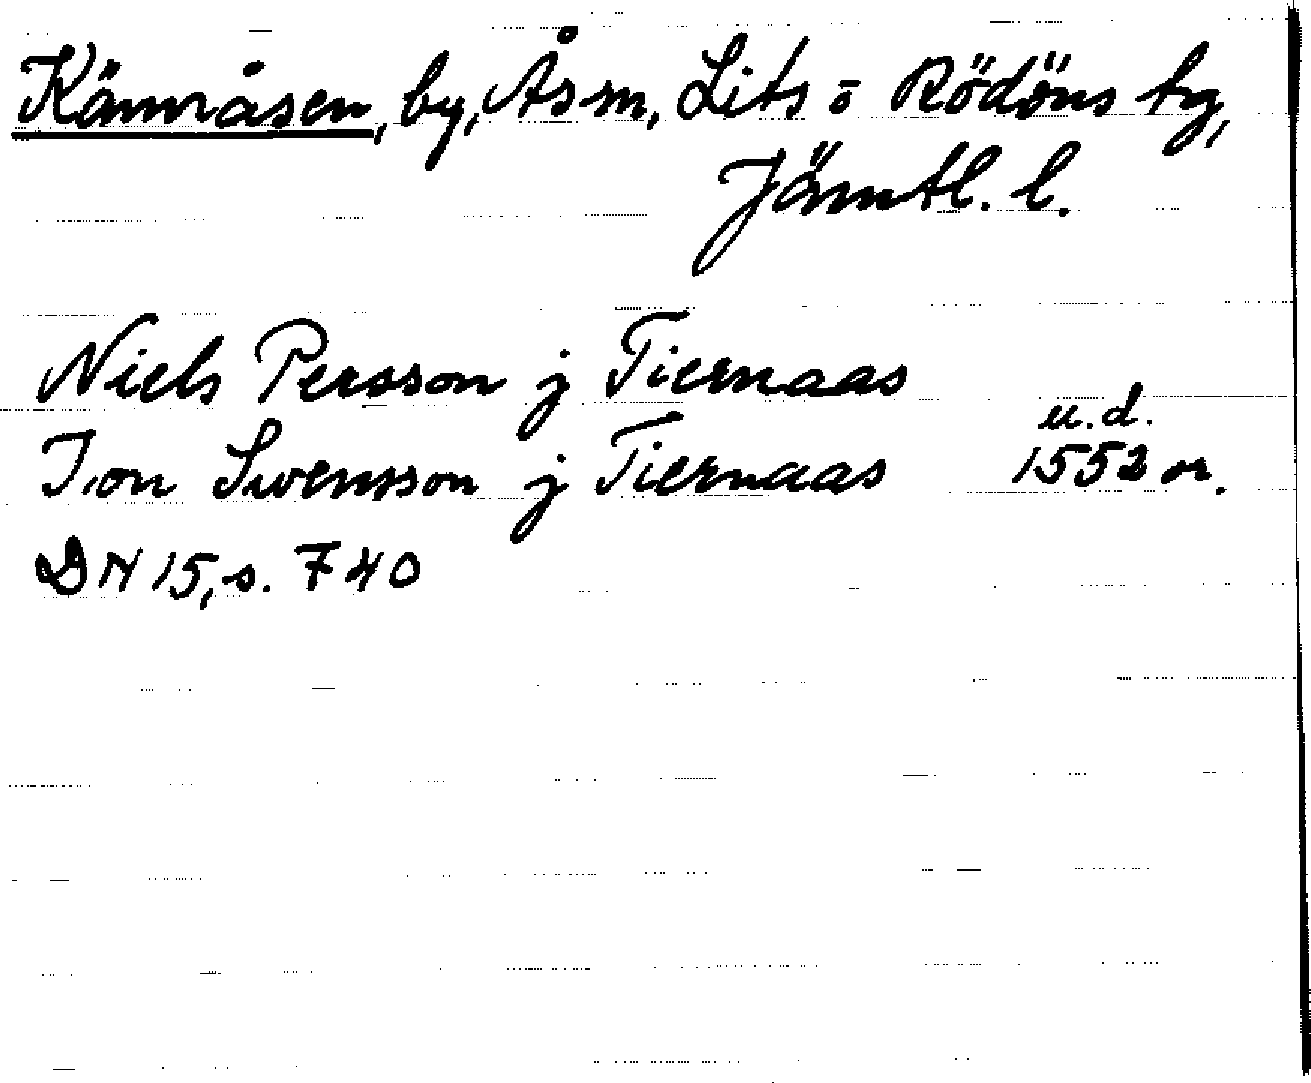 Kännåsen, by, Ås sn, Lits o Rödöns tg,
Jämtl. l.
Niels Persson j Tiernaas
u.d.
Jon Swensson j Tiernaas 1552 or.
DN 15, s. 740